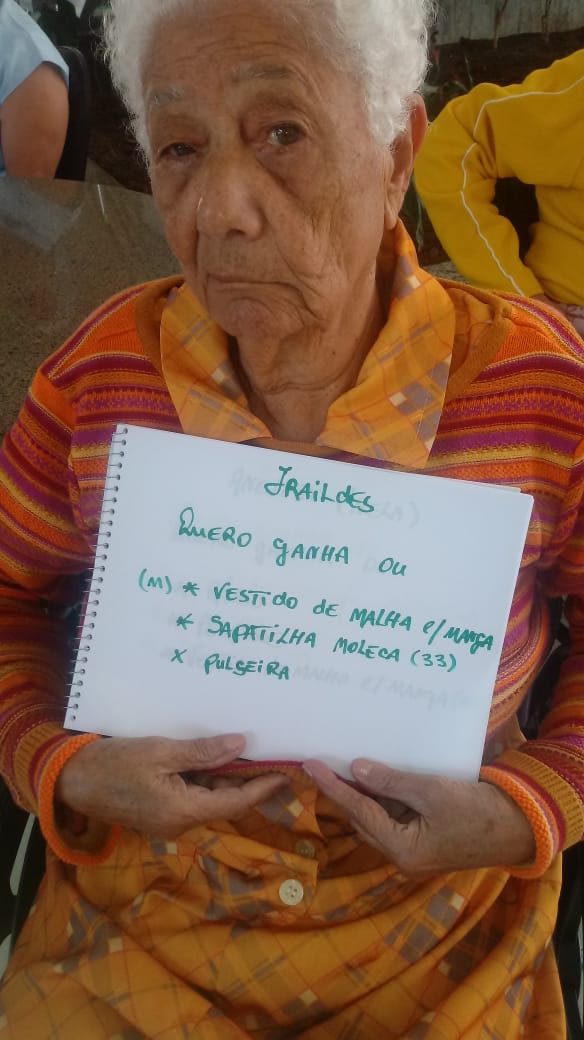 IRAILDES
QUERO GANHA OU
(M) * VESTIDO DE MALHA C/ MANGA
* SAPATILHA MOLECA (33)
x PULSEIRA